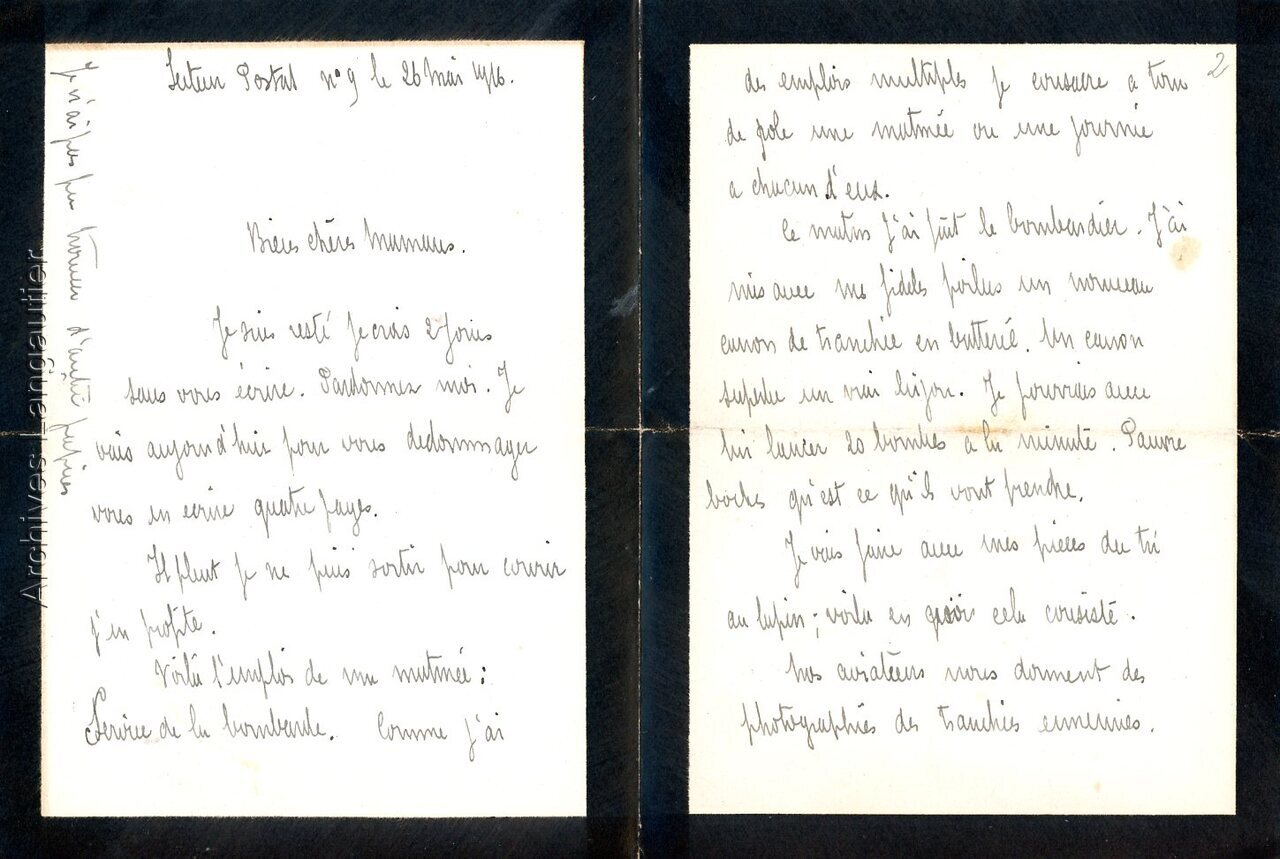 Secteur Postal n° 9 le 26 Mai 1916.
Je n'ai pas pu trouver d'autre papier
Bien chères Mamans.
Je suis resté je crois 2 jours
sans vous écrire. Pardonnez moi. Je
vais aujourd'hui pour vous dedommager
vous en écrire quatre pages.
Il pleut je ne puis sortir pour courir
j'en profite.
Voilà l'emploi de ma matinée :
Service de la bombarde. Comme j'ai
2
des emplois multiples je consacre a tour
de role une matinée ou une journée
a chacun d'eux.
Ce matin j'ai fait le bombardier. J'ai
mis avec mes fideles poilus un nouveau
canon de tranchée en batterie. Un canon
superbe un vrai bijou. Je pourrais avec
lui lancer 20 bombes a la minute. Pauvre
boches qu'est ce qu'ils vont prendre.
Je vais faire avec mes pièces du tir
au lapin ; voila en quoi cela consiste.
Nos aviateurs nous donnent des
photographies des tranchées ennemies.
Archives Langautier